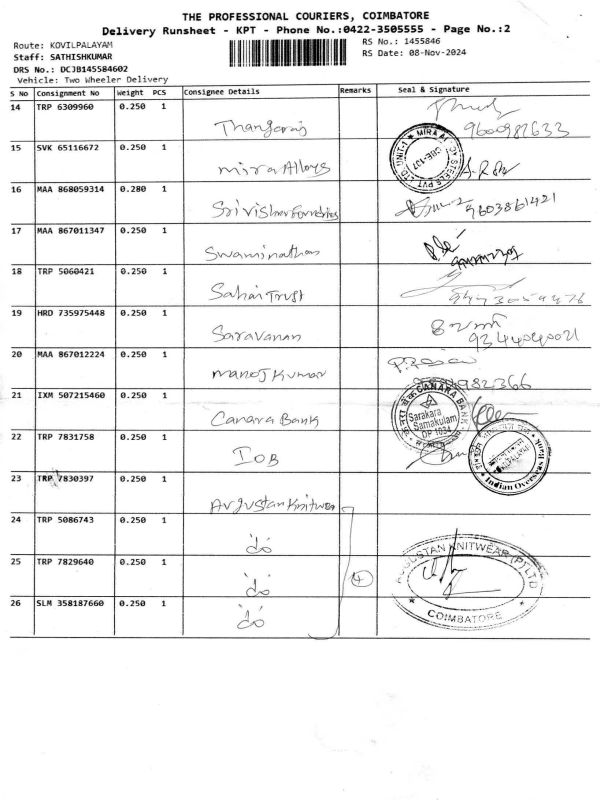 THE PROFESSIONAL COURIERS, COIMBATORE
Delivery Runsheet - KPT - Phone No.:0422-3505555 - Page No.:2
Route: KOVILPALAYAM
RS No.: 1455846
Staff: SATHISHKUMAR
RS Date: 08-Nov-2024
DRS No.: DCJB145584602
Vehicle: Two Wheeler Delivery
S No Consignment No Weight PCS Consignee Details Remarks Seal & Signature
14 TRP 6309960 0.250 1 Thangaraj
9600982633
15 SVK 65116672 0.250 1 Mira Alloys
MIRA ALLOY STEELS PVT LTD UNIT-1 CBE-107
16 MAA 868059314 0.280 1 9603861421
17 MAA 867011347 0.250 1 Swaminathan
18 TRP 5060421 0.250 1 Sahai Trust
19 HRD 735975448 0.250 1 Saravanan
9344040021
20 MAA 867012224 0.250 1 Manoj Kumar
982366
21 IXM 507215460 0.250 1 Canara Bank
CANARA BANK
Sarakara
Samakulam
DP 1034
22 TRP 7831758 0.250 1 IOB
Indian Overseas Bank
23 TRP 7830397 0.250 1 Avgustan Knitwear
24 TRP 5086743 0.250 1 do
25 TRP 7829640 0.250 1 do 4
AUGUSTAN KNITWEAR (P) LTD
COIMBATORE
26 SLM 358187660 0.250 1 do